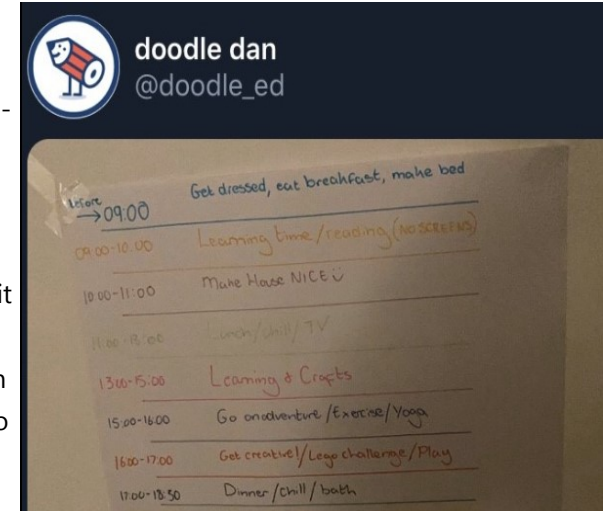 doodle dan
@doodle_ed
-
it
before
→09:00 Get dressed, eat breakfast, make bed
09:00-10:00 Learning time/reading (NO SCREENS)
10:00-11:00 Make House NICE ☺
11:00-13:00 Lunch/chill/TV
13:00-15:00 Learning & Crafts
15:00-16:00 Go on adventure/Exercise/Yoga
16:00-17:00 Get creative!/Lego challenge/Play
17:00-18:30 Dinner/chill/bath